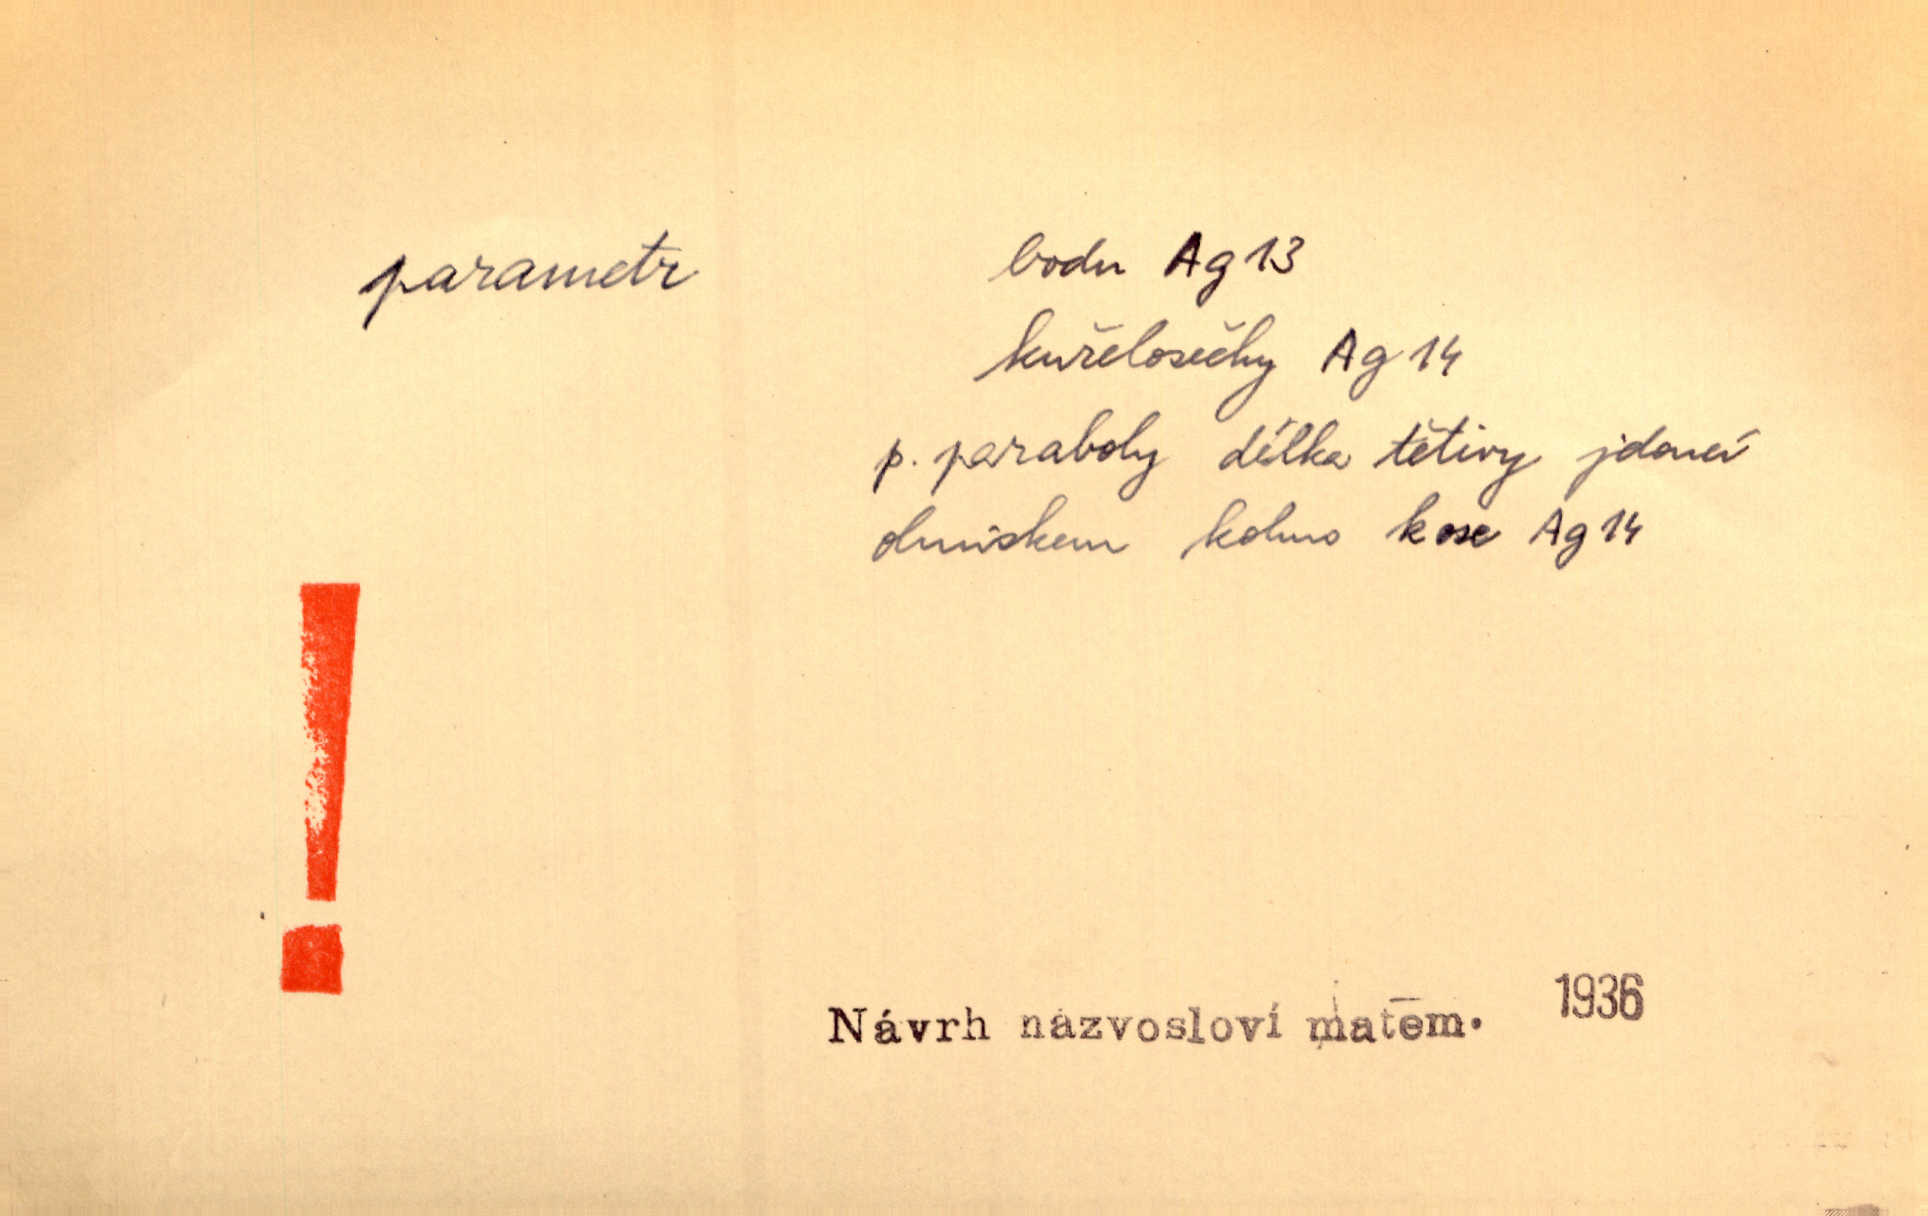 parametr
bodu Ag 13
kuželosečky Ag 14
p. paraboly délka tětivy jdoucí
ohniskem kolmo k ose Ag 14
!
Návrh názvosloví matem. 1936